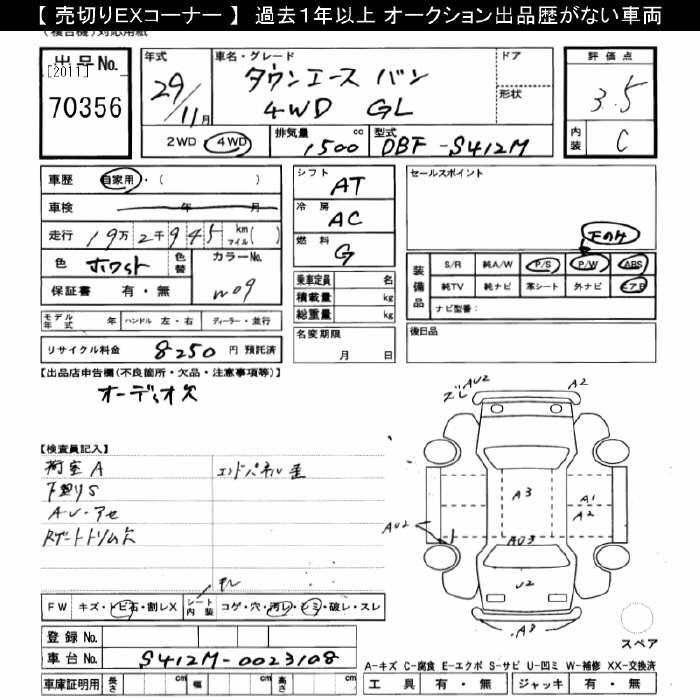 【 売切りEXコーナー 】 過去１年以上 オークション出品歴がない車両
(複合機)対応用紙
出品No.
[2011]
70356
年式
29/11月
車名・グレード
タウンエース バン
4WD GL
ドア
形状
評価点
3.5
内装
C
2WD 4WD
排気量 1500 cc
型式 DBF-S412M
車歴 自家用・( )
車検 年 月
走行 19万2千945 km マイル( )
色 ホワイト 色替
カラーNo. W09
保証書 有・無
シフト AT
冷房 AC
燃料 G
乗車定員 名
積載量 kg
総重量 kg
セールスポイント
下のみ
装備品
S/R 純A/W P/S P/W ABS
純TV 純ナビ 革シート 外ナビ エアB
ナビ型番：
モデル年式 年 ハンドル 左・右 ディーラー・並行
名変期限 月 日
後日品
リサイクル料金 8250 円 預託済
【出品店申告欄(不良箇所・欠品・注意事項等)】
オーディオ欠
【検査員記入】
荷室A エンドパネル歪
下廻りS
AU・アセ
Rゲートトリム欠
ズレ AU2 A2
A3
A1
A2
AU2
AU3
U2
A3
FW キズ・トビ石・割レX シート内装 コゲ・穴・汚レ・シミ・破レ・スレ
登録No.
車台No. S412M-0023108
車庫証明用 長さ cm 幅 cm 高さ cm
スペア
A-キズ C-腐食 E-エクボ S-サビ U-凹ミ W-補修 XX-交換済
工具 有・無 ジャッキ 有・無